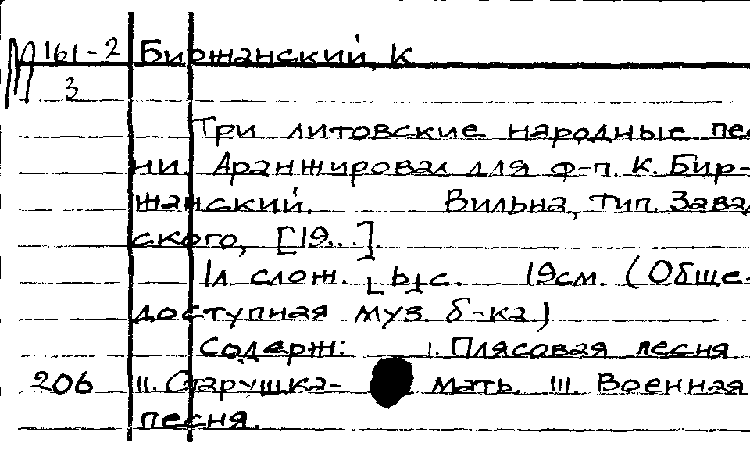 161-2 Биржанский, К
3
Три литовские народные пес
ни. Аранжировал для ф-п. К. Бир-
жанский. Вильна, тип. Завад
ского, [19..].
1л слож. 19см. (Обще-
доступная муз. б-ка)
Содерж: I. Плясовая песня
206 II. Старушка- мать. III. Военная
песня.